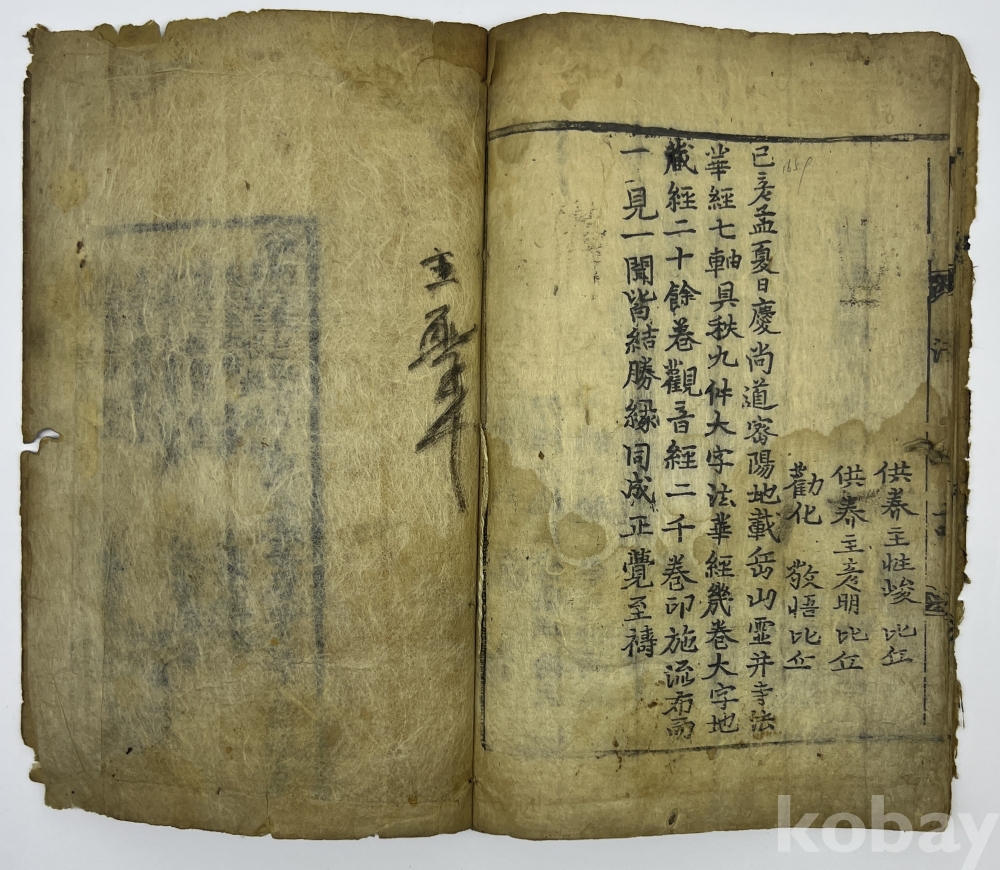 供養主性峻 比丘
供養主彦明 比丘
勸化 敬悟比丘
1659
己亥孟夏日慶尚道密陽地載岳山靈井寺法
華經七軸具秩九件大字法華經幾卷大字地
藏經二十餘卷觀音經二千卷印施流布而
一見一聞皆結勝緣同成正覺至禱
主
kobay